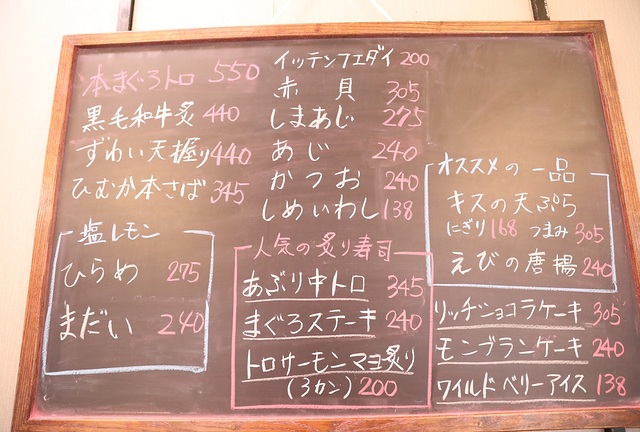 本まぐろトロ 550
黒毛和牛炙 440
ずわい天握り 440
ひむか本さば 345
塩レモン
ひらめ 275
まだい 240
イッテンフエダイ 200
赤貝 305
しまあじ 275
あじ 240
かつお 240
しめいわし 138
人気の炙り寿司
あぶり中トロ 345
まぐろステーキ 240
トロサーモンマヨ炙り
(3カン) 200
オススメの一品
キスの天ぷら
にぎり 168 つまみ 305
えびの唐揚 240
リッチショコラケーキ 305
モンブランケーキ 240
ワイルドベリーアイス 138